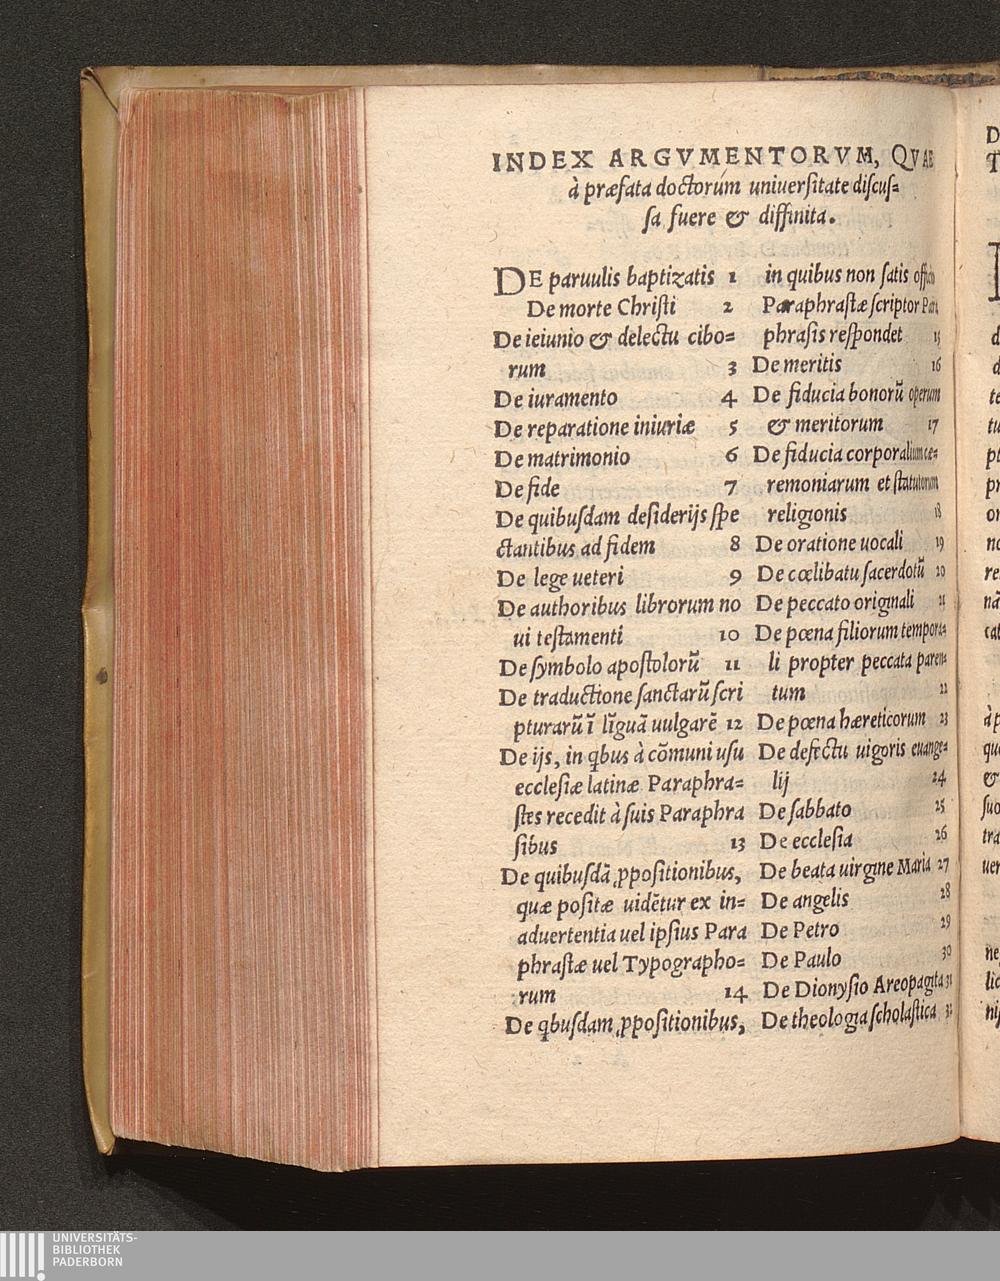 INDEX ARGVMENTORVM, QVAE
à præfata doctorúm uniuerſitate diſcuſ=
ſa fuere & diffinita.
DE paruulis baptizatis 1
De morte Chriſti 2
De ieiunio & delectu cibo=
rum 3
De iuramento 4
De reparatione iniuriæ 5
De matrimonio 6
De fide 7
De quibuſdam deſiderijs ſpe
ctantibus ad fidem 8
De lege ueteri 9
De authoribus librorum no
ui teſtamenti 10
De ſymbolo apoſtolorũ 11
De traductione ſanctarũ ſcri
pturarũ ĩ lĩguã uulgarẽ 12
De ijs, in qbus à cõmuni uſu
eccleſiæ latinæ Paraphra=
ſtes recedit à ſuis Paraphra
ſibus 13
De quibuſdã ꝓpoſitionibus,
quæ poſitæ uidẽtur ex in=
aduertentia uel ipſius Para
phraſtæ uel Typographo=
rum 14
De qbuſdam ꝓpoſitionibus,
in quibus non ſatis officio
Paraphraſtæ ſcriptor Para
phraſis reſpondet 15
De meritis 16
De fiducia bonorũ operum
& meritorum 17
De fiducia corporalium cæ=
remoniarum et ſtatutorum
religionis 18
De oratione uocali 19
De cœlibatu ſacerdotũ 20
De peccato originali 21
De pœna filiorum tempora=
li propter peccata paren=
tum 22
De pœna hæreticorum 23
De defectu uigoris euange=
lij 24
De ſabbato 25
De eccleſia 26
De beata uirgine Maria 27
De angelis 28
De Petro 29
De Paulo 30
De Dionyſio Areopagita 31
De theologia ſcholaſtica 32
UNIVERSITÄTS-
BIBLIOTHEK
PADERBORN